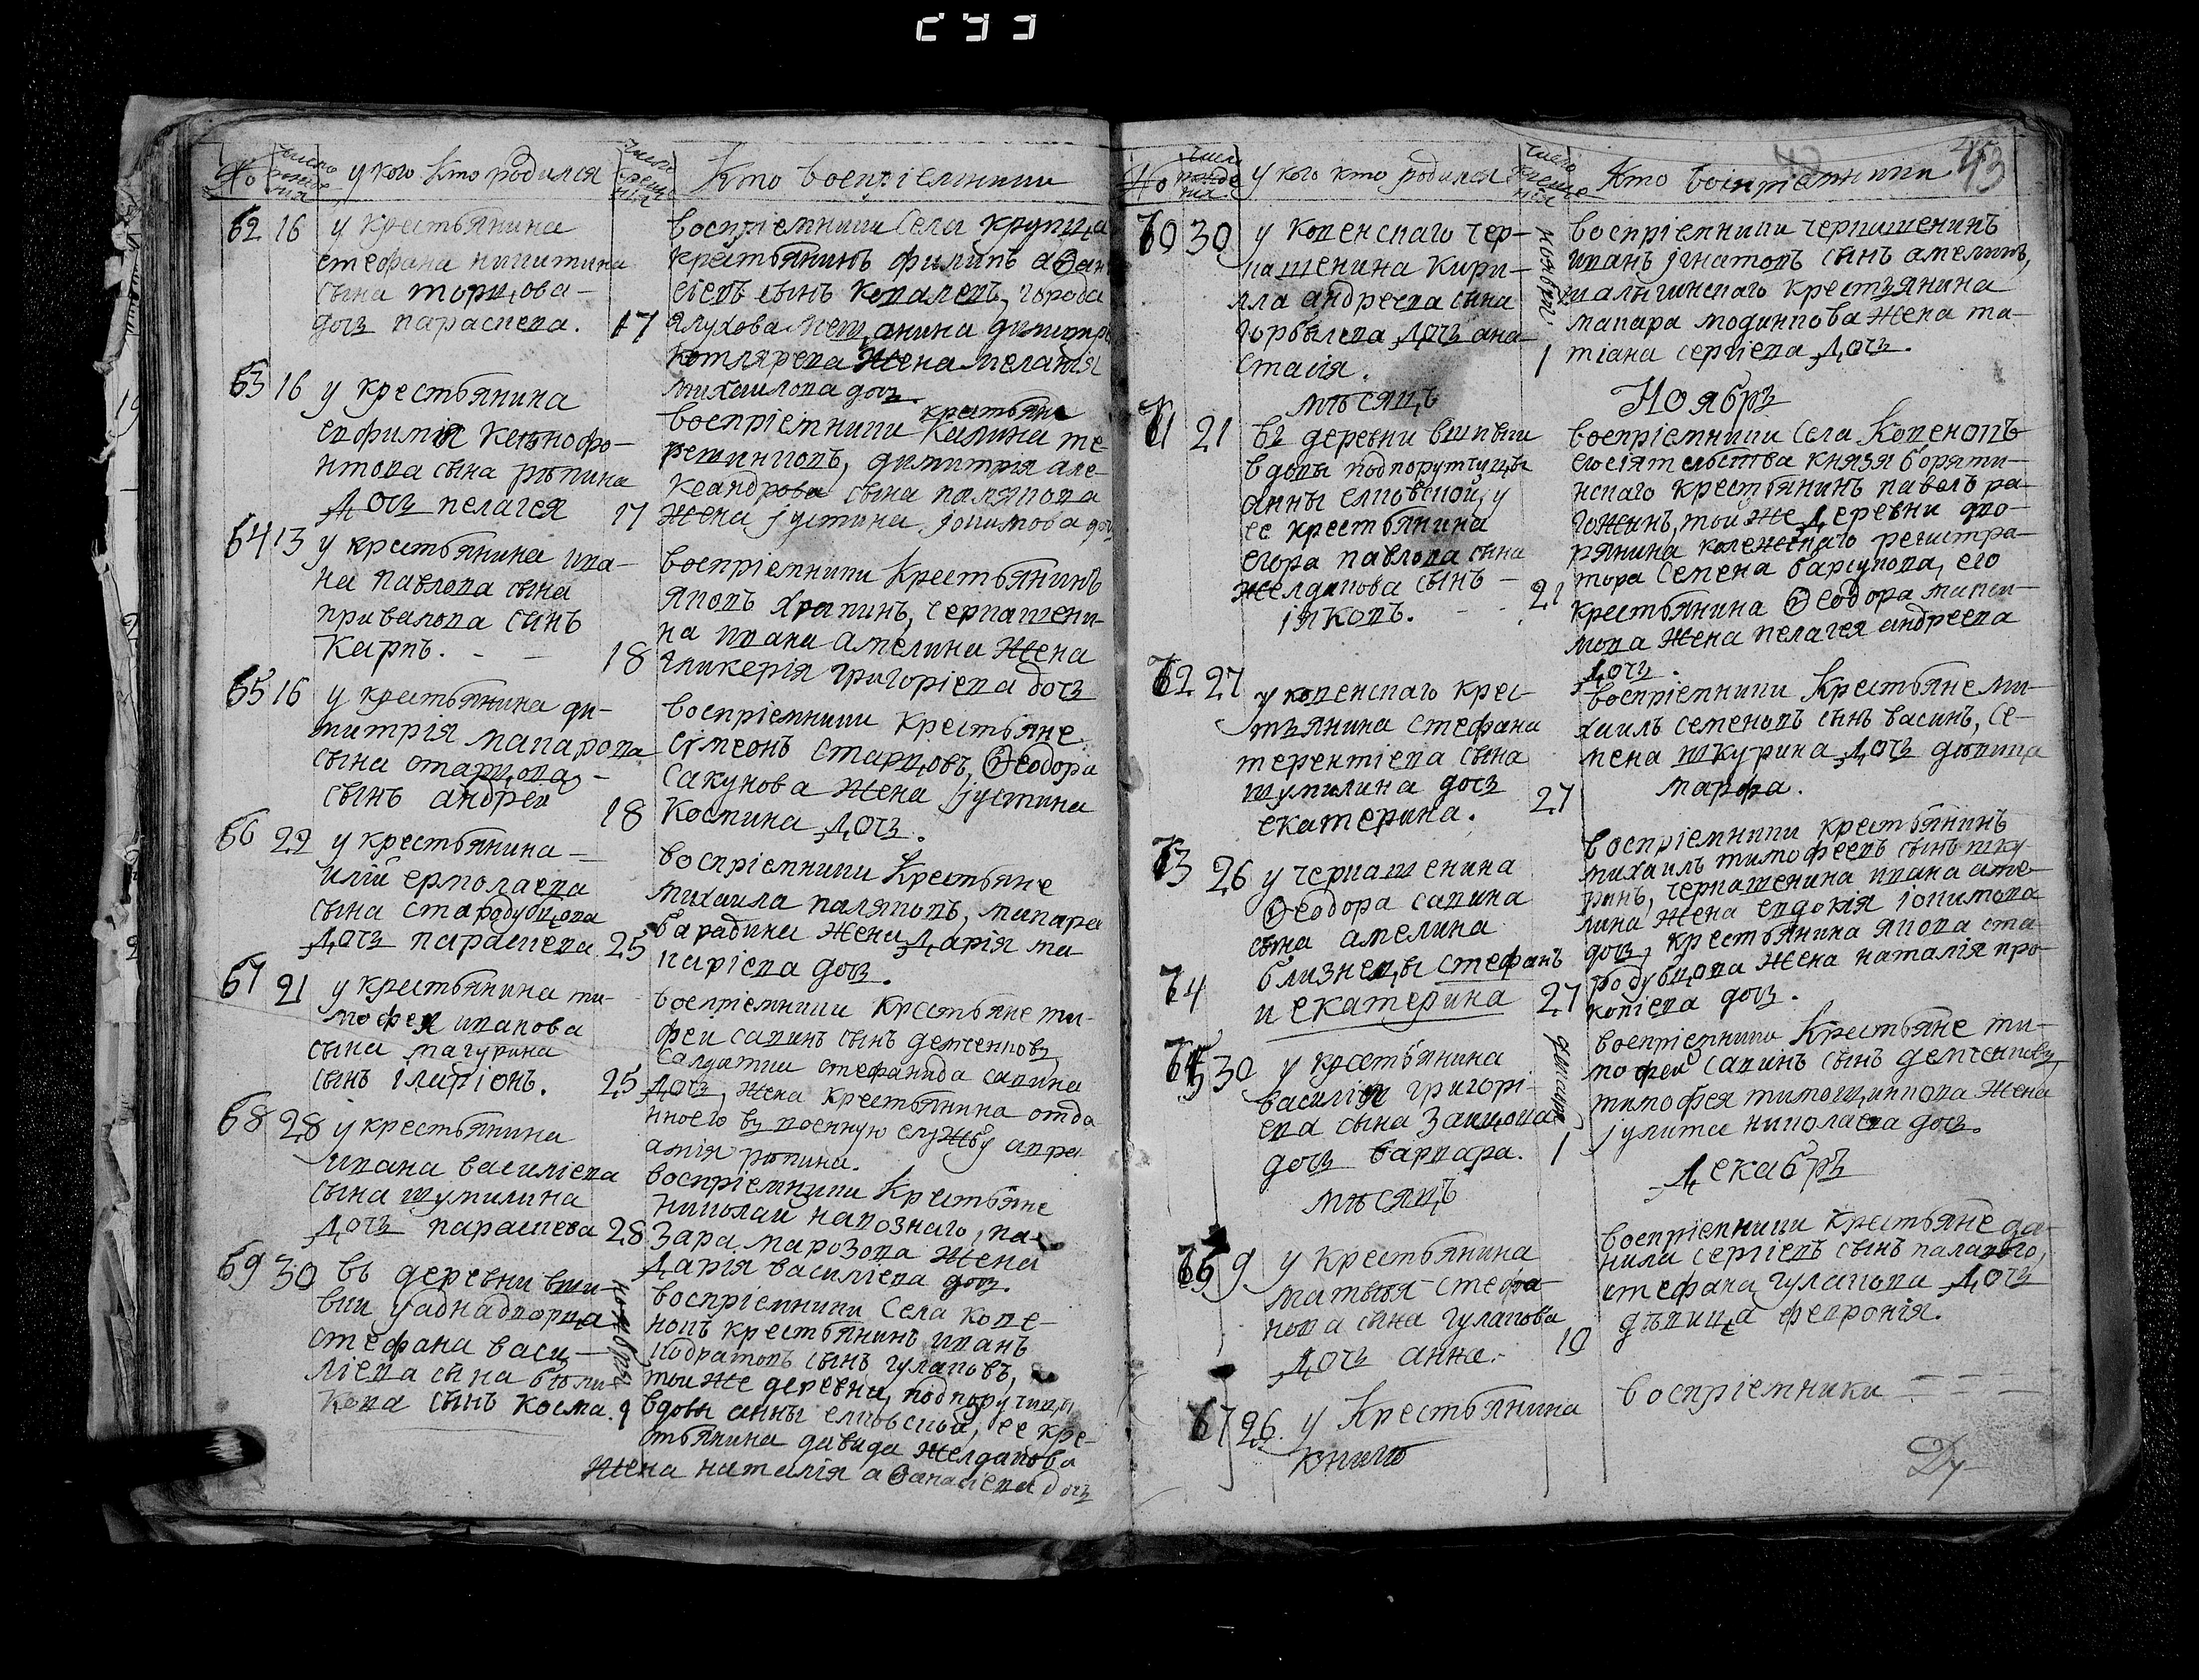 No
число рожденія
у кого кто родился
число крещенія
Кто воспріемники
62 16
у крестьянина
стефана никитина
сына торцова –
дочъ параскева.
17
воспріемники села крупца
крестьянинъ филипъ аѳан
сіевъ сынъ ковалевъ, города
глухова мещанина димитрі
котлярева жена меланія
михаилова дочъ
63 16
у крестьянина
евфимія ксенофо–
нтова сына репина
дочъ пелагея
17
воспріемники крестьяне калина те
решинковъ, димитрія але
ксандрова сына полякова
жена іустина іовимова доч
64 13
у крестьянина ива–
на павлова сына
привалова сынъ
Карпъ. – –
18
воспріемники крестьянинъ
яковъ храпинъ, черкашени–
на ивана амелина жена
гликерія григоріева дочъ
65 16
у крестьянина ди–
митрія макарова
сына старцова –
сынъ андрей
18
воспріемники крестьяне
сімеонъ старцовъ, Ѳеодора
Сакунова жена іустина
Костина дочъ.
66 22
у крестьянина –
иліи ермолаева
сына стародубцова
дочъ параскева
25
воспріемники крестьяне
михаила поляковъ, макара
барадина жена дарія ма–
каріева дочъ.
67 21
у крестьянина ти–
мофея иванова
сына магурина
сынъ іларіонъ.
25
воспріемники крестьяне ти–
фей савинъ сынъ демченковъ
солдатки стефанида савина
дочъ, жена крестьянина отда
нного въ военную службу авра
амія репина.
68 28
у крестьянина
ивана василіева
сына шумилина
дочъ параскева
28
воспріемники крестьяне
николай напознаго, на–
зара марозова жена
дарія василіева дочъ.
69 30
въ деревни вши–
вки у аднадворца
стефана васи–
ліева сына бѣли–
кова сынъ косма.
ноября
9
воспріемники села копе–
нокъ крестьянинъ иванъ
кодратовъ сынъ гулаковъ,
той же деревни, подпоручицы
вдовы анны елковской, ее кре–
стьянина давида желдакова
жена наталія аѳанасіева дочъ
43
No
число рожденія
у кого кто родился
число крещенія
Кто воспріемники
70 30
у копенскаго чер–
кашенина кири–
лла андреева сына
горбылева дочъ ана–
стасія.
ноября
1
воспріемники черкашенинъ
иванъ ігнатовъ сынъ амелинъ,
шалыгинскаго крестьянина
макара модинкова жена та–
тіана сергіева дочъ.
мѣсяцъ Ноябръ
71 21
въ деревни вшивки
вдовы подпорутчицы
анны елковской, у
ее крестьянина
егора павлова сына
желдакова сынъ –
іяковъ. –
21
воспріемники села Копенокъ
его сіятельства князя боряти–
нскаго крестьянинъ павелъ ра–
гожинъ, той же деревни дво–
рянина колежскаго регистра–
тора семена барсукова, его
крестьянина Ѳеодора макси–
мова жена пелагея андреева
дочъ.
72 27
у копенскаго крес–
тьянина стефана
терентіева сына
шумилина дочъ
екатерина.
27
воспріемники крестьяне ми–
хаилъ семеновъ сынъ васинъ, се–
мена шкурина дочъ девица
марфа.
73 26
у черкашенина
Ѳеодора савина
сына амелина
близнецы стефанъ
74
и екатерина
27
воспріемники крестьянинъ
михаилъ тимофеевъ сынъ шку–
ринъ, черкашенина ивана аме–
лина жена евдокія іовимова
дочъ, крестьянина якова ста
родубцова жена наталія про–
копіева дочъ.
75 30
у крестьянина
василія григорі–
ева сына зайцова
дочъ варвара.
декабря
1
воспріемники крестьяне ти–
мофей савинъ сынъ демченковъ,
тимофея тимощинкова жена
іулита николаева дочъ.
мѣсяцъ Декабръ
9
у крестьянина
матвея стефа–
нова сына гулакова
дочъ анна.
10
воспріемники крестьяне да–
нила сергіевъ сынъ палаваго,
стефана гулакова дочъ
дѣвица февронія.
67 26.
у крестьянина
воспріемники – – –